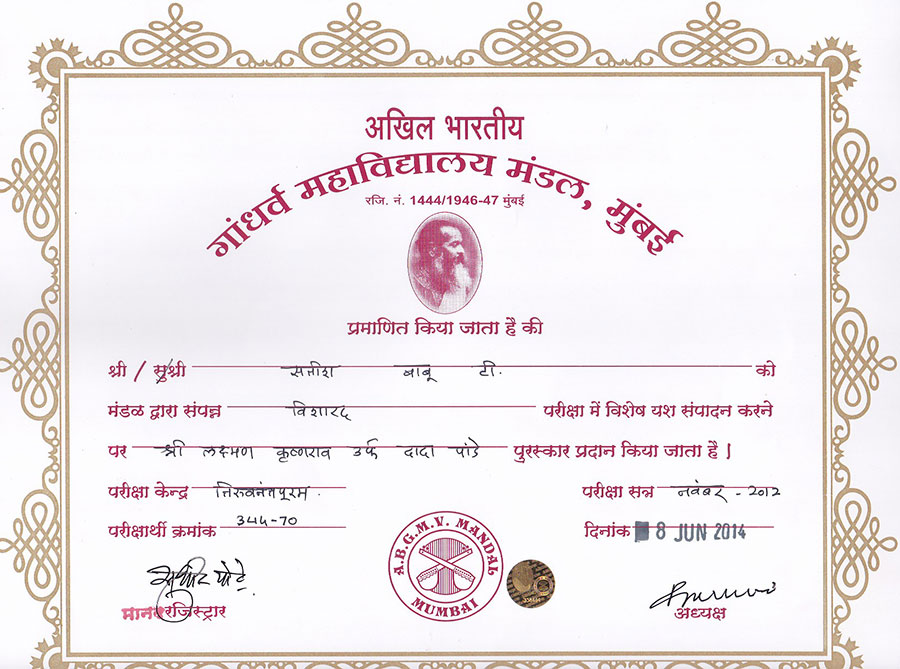 अखिल भारतीय
गांधर्व महाविद्यालय मंडल, मुंबई
रजि. नं. 1444/1946-47 मुंबई
प्रमाणित किया जाता है की
श्री / सुश्री सतीश बाबू टी. को
मंडळ द्वारा संपन्न विशारद परीक्षा में विशेष यश संपादन करने
पर श्री लक्ष्मण कृष्णराव उर्फ दादा पांडे पुरस्कार प्रदान किया जाता है।
परीक्षा केन्द्र तिरुवनंतपूरम. परीक्षा सत्र नवंबर - 2012
परीक्षार्थी क्रमांक ३५५-70 दिनांक 8 JUN 2014
A.B.G.M.V. MANDAL
MUMBAI
रजिस्ट्रार अध्यक्ष